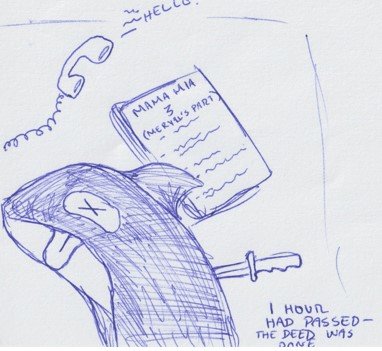 HELLO?
MAMA MIA
3
(MERYL'S PART)
1 HOUR
HAD PASSED—
THE DEED WAS
DONE